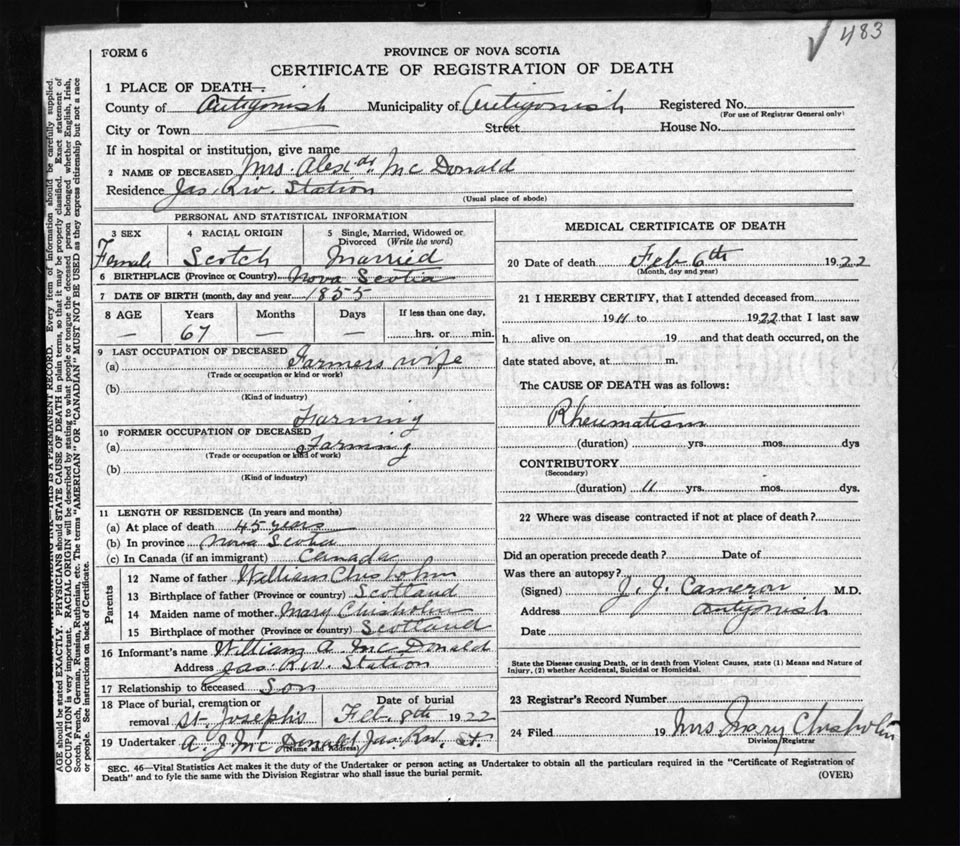 483
FORM 6
PROVINCE OF NOVA SCOTIA
CERTIFICATE OF REGISTRATION OF DEATH
1 PLACE OF DEATH—
County of Antigonish Municipality of Antigonish Registered No.
(For use of Registrar General only)
City or Town Street House No.
If in hospital or institution, give name
2 NAME OF DECEASED Mrs. Alexdr. McDonald
Residence Jas. Rw. Station
(Usual place of abode)
PERSONAL AND STATISTICAL INFORMATION
3 SEX 4 RACIAL ORIGIN 5 Single, Married, Widowed or Divorced (Write the word)
Female Scotch Married
6 BIRTHPLACE (Province or Country) Nova Scotia
7 DATE OF BIRTH (month, day and year) 1855
8 AGE Years Months Days If less than one day,
— 67 — — hrs. or min.
9 LAST OCCUPATION OF DECEASED
(a) Farmers wife
(Trade or occupation or kind or work)
(b)
(Kind of industry)
Farming
10 FORMER OCCUPATION OF DECEASED
(a) Farming
(Trade or occupation or kind of work)
(b)
(Kind of industry)
11 LENGTH OF RESIDENCE (In years and months)
(a) At place of death 45 years
(b) In province Nova Scotia
(c) In Canada (if an immigrant) Canada
Parents
12 Name of father William Chisholm
13 Birthplace of father (Province or country) Scotland
14 Maiden name of mother Mary Chisholm
15 Birthplace of mother (Province or country) Scotland
16 Informant's name William A. McDonald
Address Jas. Rw. Station
17 Relationship to deceased Son
18 Place of burial, cremation or removal St. Joseph's Date of burial Feb. 8th 1922
19 Undertaker A. J. McDonald Jas. Rw. St.
(Name and address)
MEDICAL CERTIFICATE OF DEATH
20 Date of death Feb 6th 1922
(Month, day and year)
21 I HEREBY CERTIFY, that I attended deceased from
1911 to 1922 that I last saw
h alive on 19 and that death occurred, on the
date stated above, at m.
The CAUSE OF DEATH was as follows:
Rheumatism
(duration) yrs. mos. dys
CONTRIBUTORY
(Secondary)
(duration) 11 yrs. mos. dys.
22 Where was disease contracted if not at place of death?
Did an operation precede death? Date of
Was there an autopsy?
(Signed) J. J. Cameron M.D.
Address Antigonish
Date
State the Disease causing Death, or in death from Violent Causes, state (1) Means and Nature of
Injury, (2) whether Accidental, Suicidal or Homicidal.
23 Registrar's Record Number
24 Filed 19 Mrs Mary Chisholm
Division Registrar
SEC. 46—Vital Statistics Act makes it the duty of the Undertaker or person acting as Undertaker to obtain all the particulars required in the "Certificate of Registration of
Death" and to fyle the same with the Division Registrar who shall issue the burial permit.
(OVER)
THIS IS A PERMANENT RECORD. Every item of information should be carefully supplied.
AGE should be stated EXACTLY. PHYSICIANS should STATE CAUSE OF DEATH in plain terms, so that it may be properly classified. Exact statement of
OCCUPATION is very important. RACIAL ORIGIN will be described by stating to what people or tongue the deceased person belonged, whether English, Irish,
Scotch, French, German, Russian, Ruthenian, etc. The terms "AMERICAN" OR "CANADIAN" MUST NOT BE USED as they express citizenship but not a race
or people. See instructions on back of Certificate.